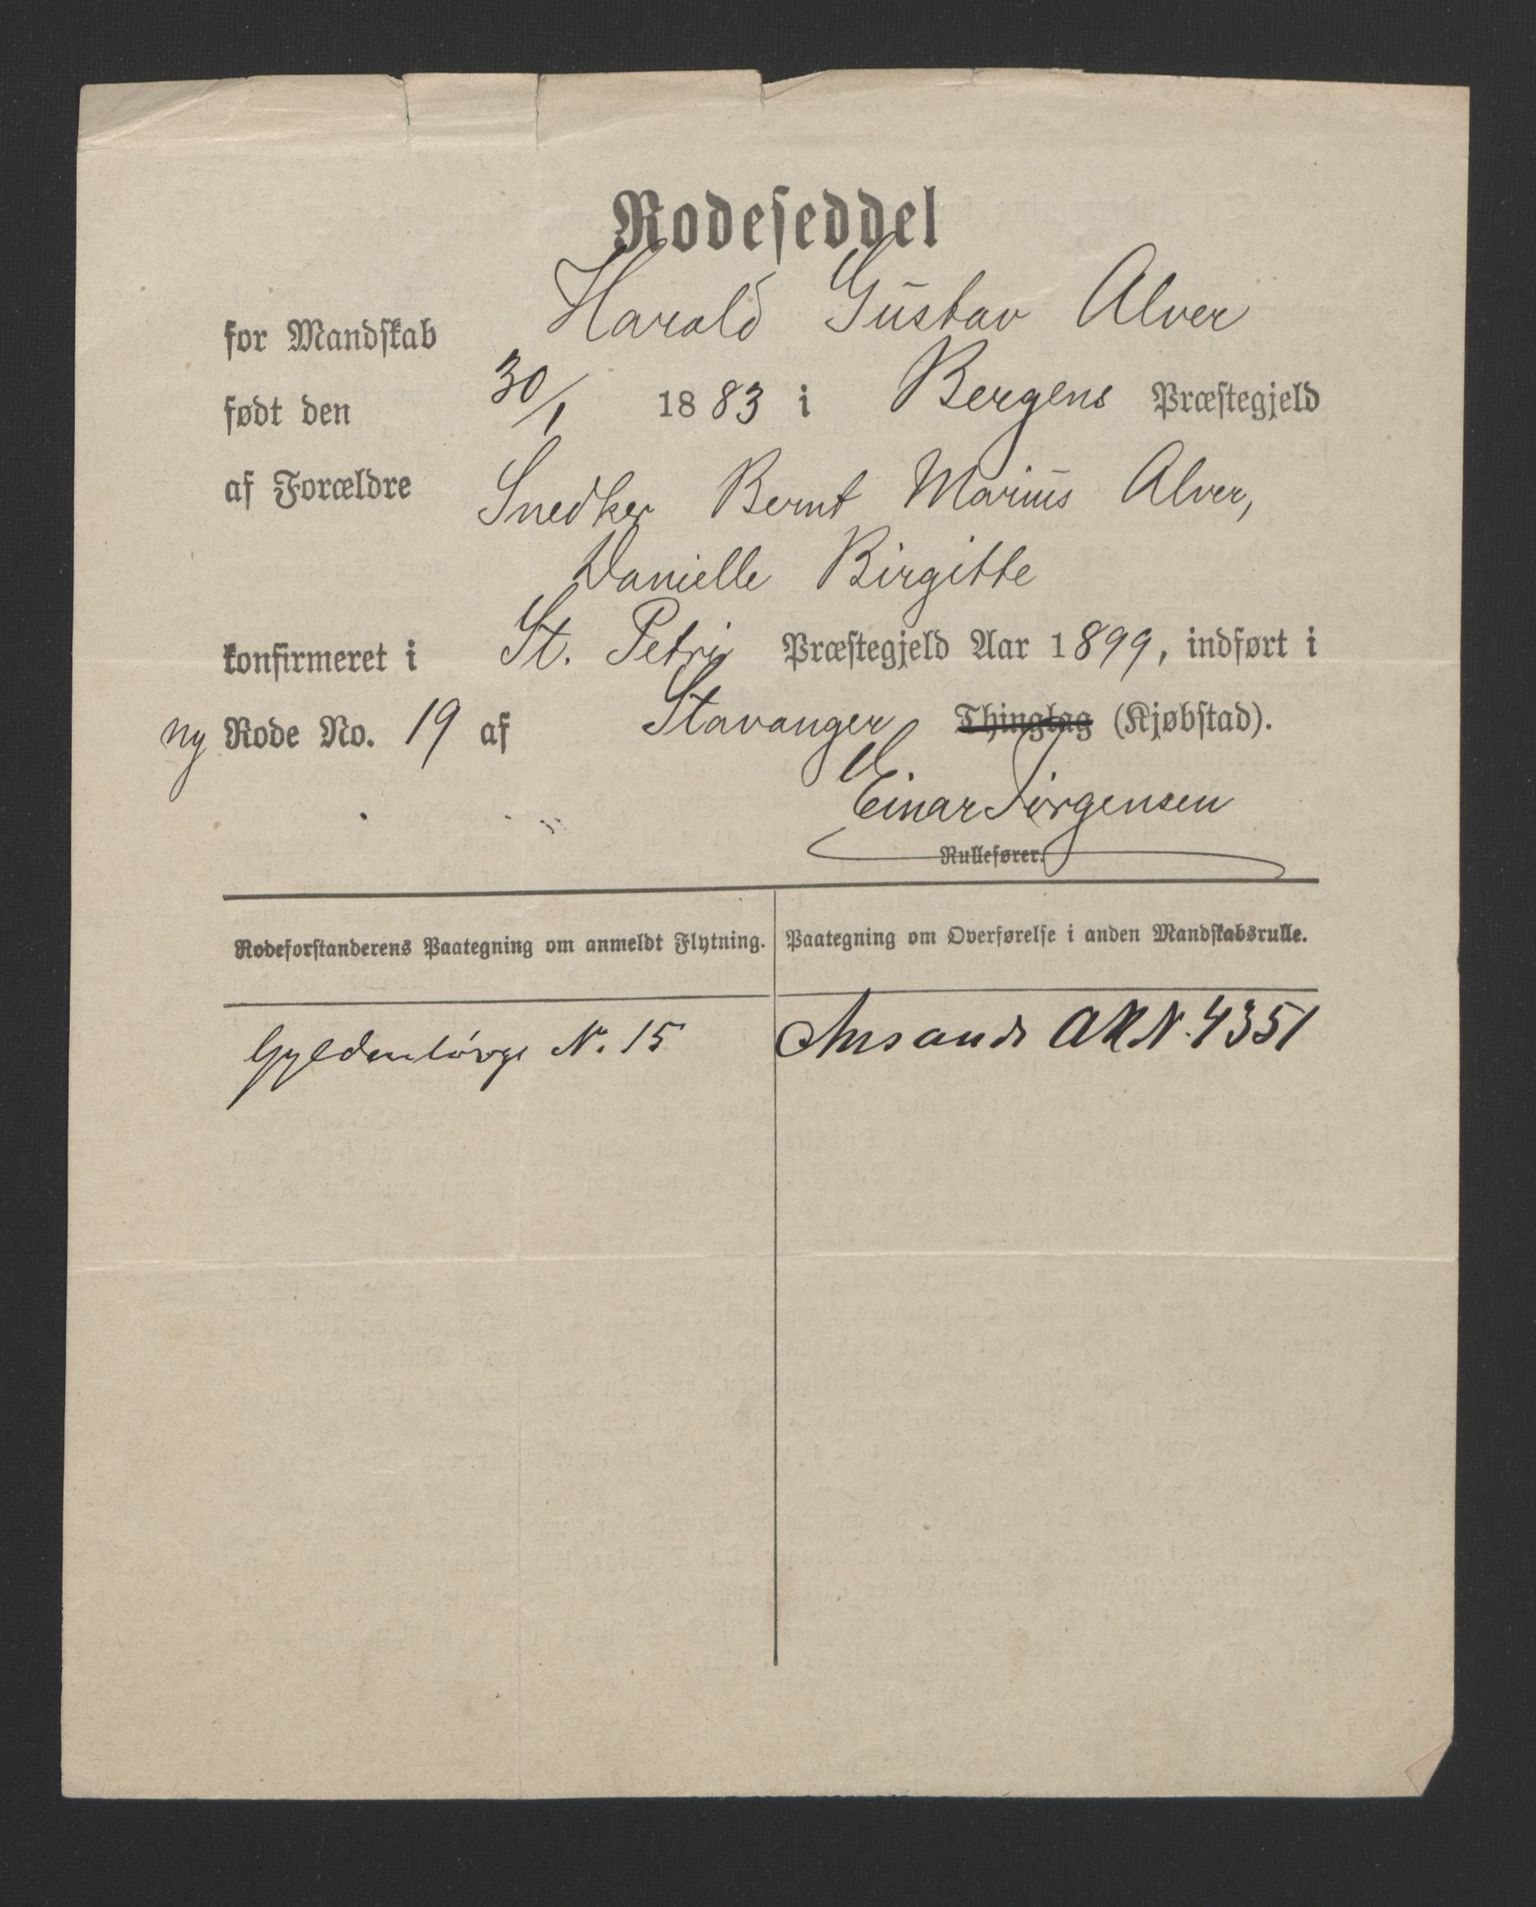 Rodeseddel
for Mandskab Harald Gustav Alver
født den 30/1 1883 i Bergens Præstegjeld
af Forældre Snedker Bernt Marius Alver,
Danielle Birgitte
konfirmeret i St. Petri Præstegjeld Aar 1899, indført i
ny Rode No. 19 af Stavanger Thinglag (Kjøbstad).
Einar Jørgensen
Rullefører.
Rodeforstanderens Paategning om anmeldt Flytning.
Paategning om Overførelse i anden Mandskabsrulle.
Gyldenløvgt N. 15
Chrsands AR N. 4351